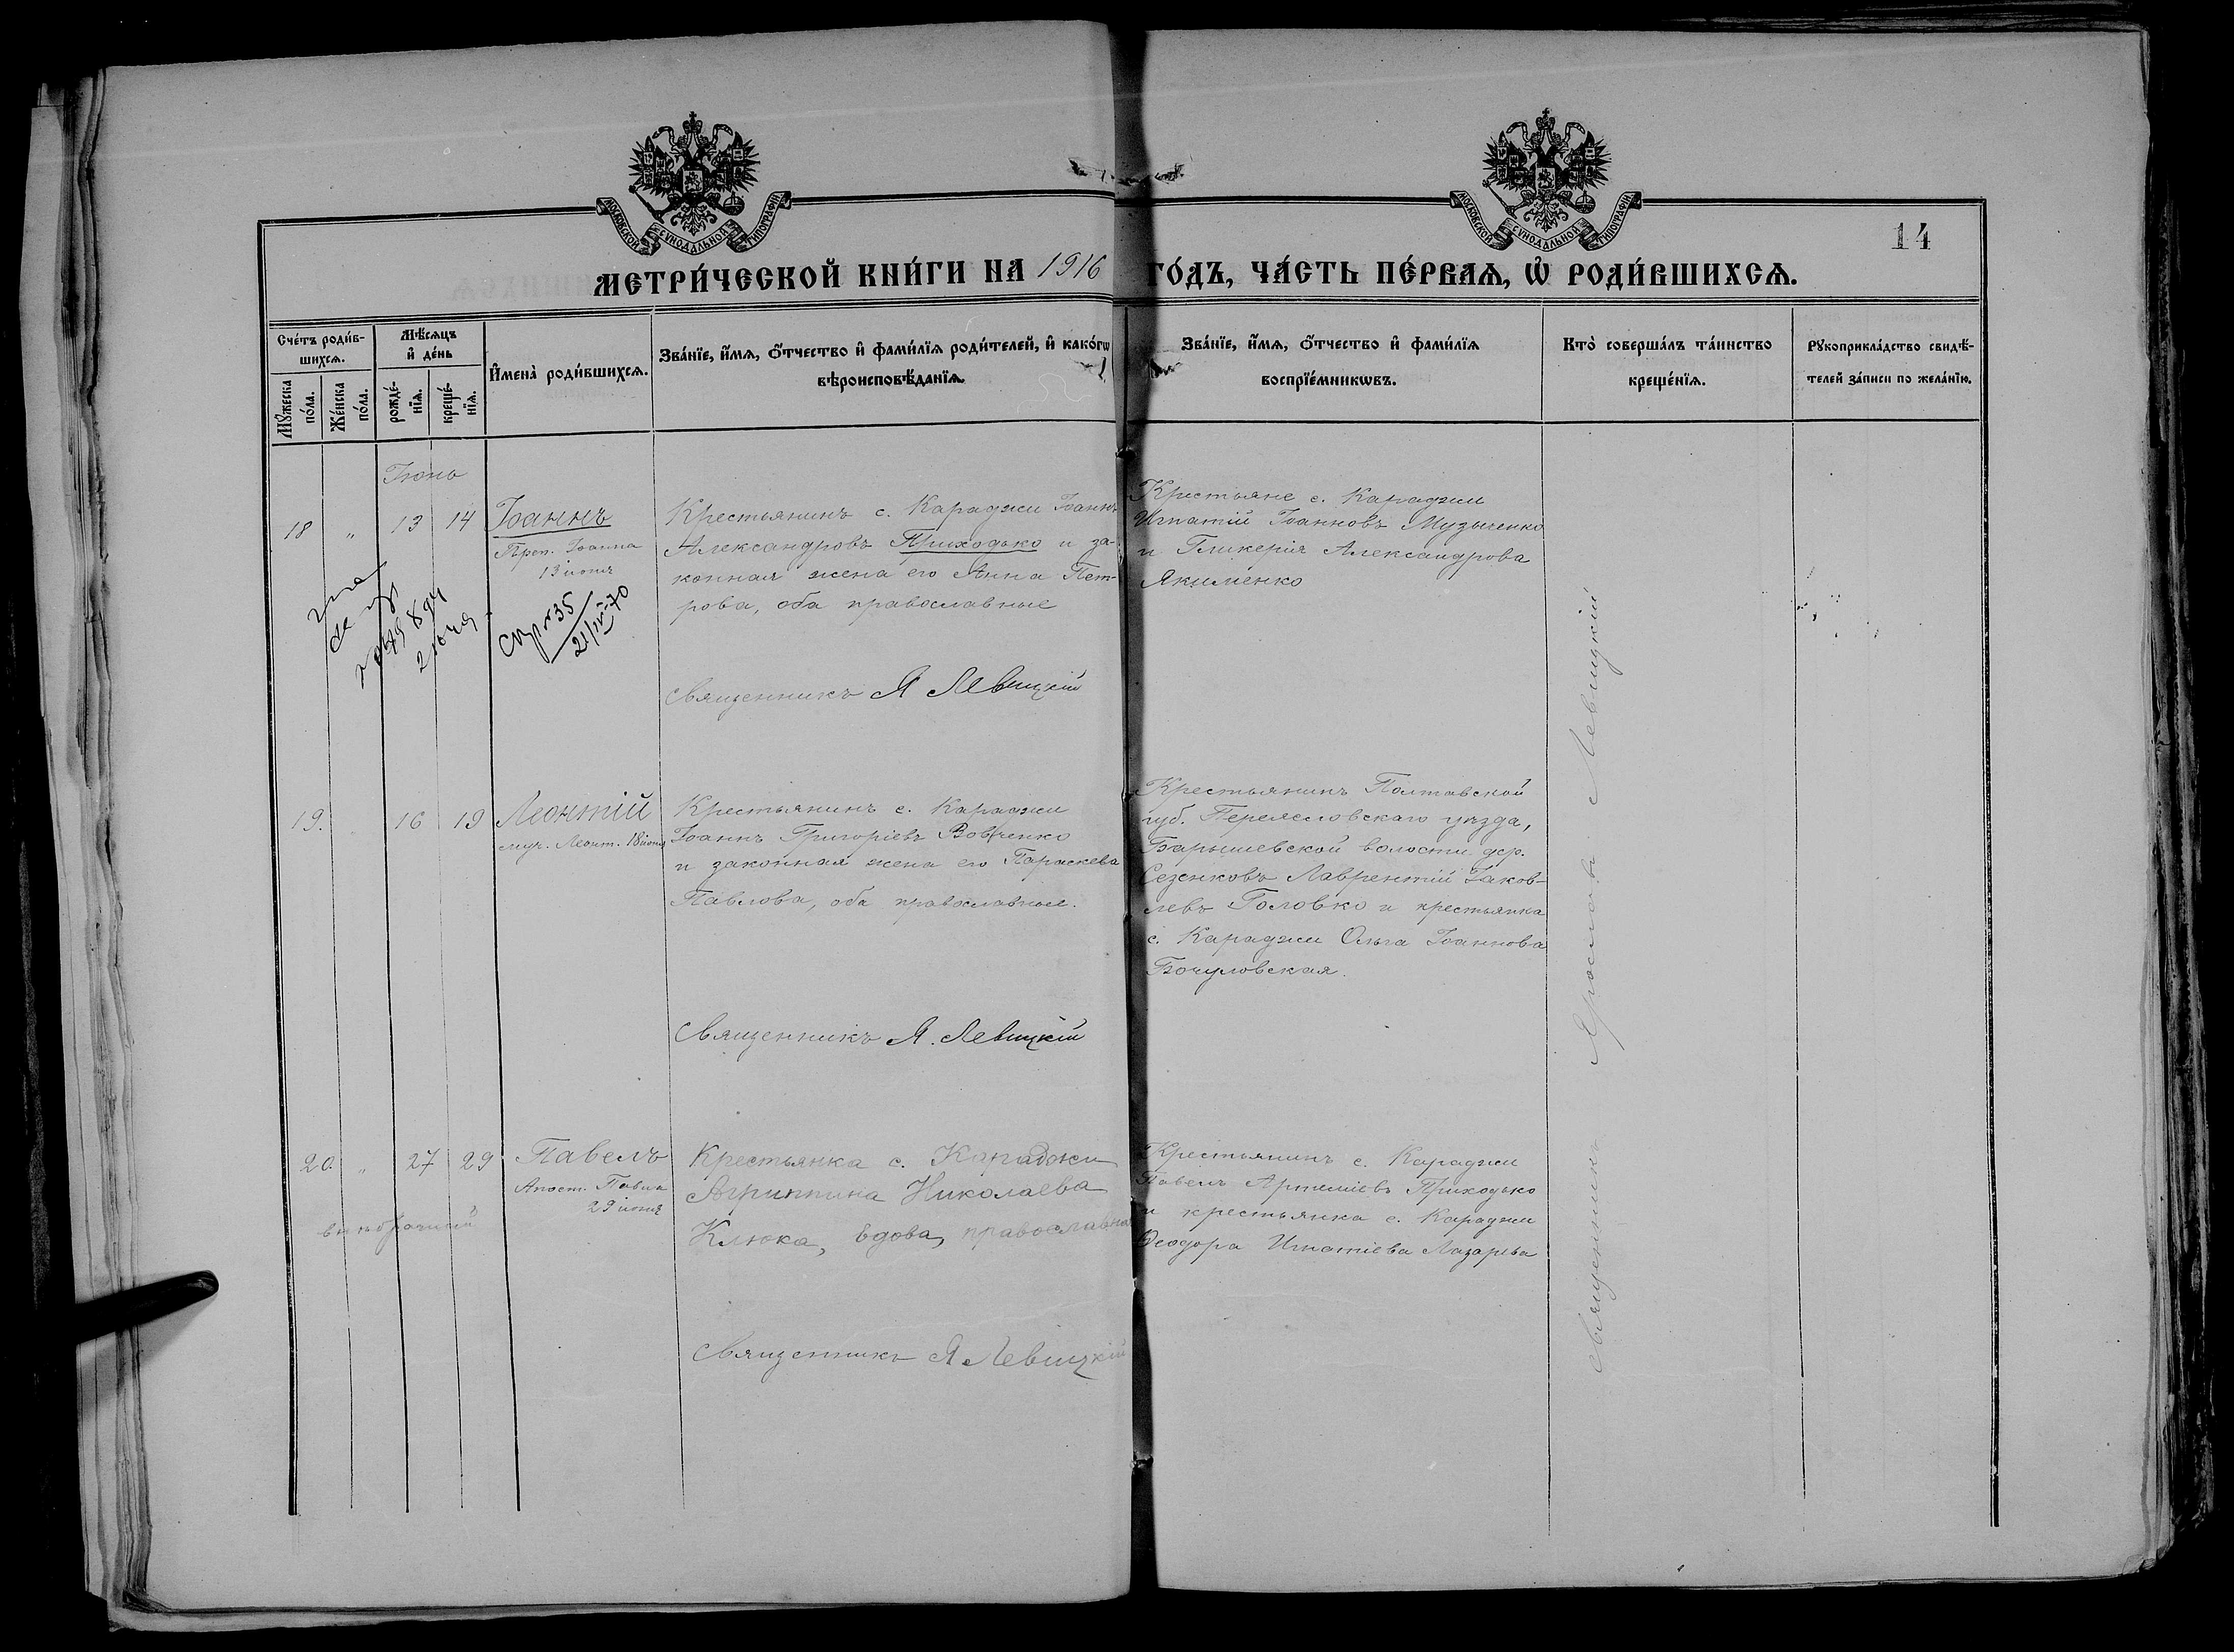 МОСКОВСКОЙ СУНОДАЛЬНОЙ ТИПОГРАФІИ
МОСКОВСКОЙ СУНОДАЛЬНОЙ ТИПОГРАФІИ
14
МЕТРИ́ЧЕСКОЙ КНИ́ГИ НА 1916 ГО́ДЪ, ЧА́СТЬ ПЕ́РВАѦ, Ѡ҆ РОДИ́ВШИХСѦ.
Сче́тъ роди́в-
шихсѧ.
Мꙋ́жеска
по́ла.
Же́нска
по́ла.
Мѣ́сѧцъ
и҆ де́нь
рожде́-
нїѧ.
креще́-
нїѧ.
И҆мена̀ роди́вшихсѧ.
Зва́нїе, и҆́мѧ, ѻ҆́тчество и҆ фами́лїѧ роди́телей, и҆ како́гѡ
вѣроисповѣ́данїѧ.
Зва́нїе, и҆́мѧ, ѻ҆́тчество и҆ фами́лїѧ
воспрїе́мникѡвъ.
Кто̀ соверша́лъ та́инство
креще́нїѧ.
Рꙋкоприкла́дство свидѣ́-
телей за́писи по жела́нїю.
Іюнь
18 " 13 14
Іоаннъ
Преп. Іоанна
13 іюня
Крестьянинъ с. Караджи Іоаннъ
Александровъ Приходько и за-
конная жена его Анна Пет-
рова, оба православные
Священникъ Я Левицкій
Крестьяне с. Караджи
Игнатій Іоанновъ Музыченко
и Гликерія Александрова
Якименко
№35
21/IV-70
19. 16 19
Леонтій
муч. Леонт. 18 іюня
Крестьянинъ с. Караджи
Іоаннъ Григоріевъ Вовченко
и законная жена его Параскева
Павлова, оба православные.
Священникъ Я. Левицкій
Крестьянинъ Полтавской
губ. Переясловскаго уѣзда,
Барышевской волости дер.
Сезенковъ Лаврентій Іаков-
левъ Головко и крестьянка
с. Караджи Ольга Іоаннова
Бочуловская.
20. " 27 29
внѣбрачный
Павелъ
Апост. Павла
29 іюня
Крестьянка с. Караджи
Агриппина Николаева
Клюка, вдова, православная
Священникъ Я Левицкій
Крестьянинъ с. Караджи
Павелъ Артеміевъ Приходько
и крестьянка с. Караджи
Ѳеодора Игнатіева Лазарева
Священникъ Ярославъ Левицкій